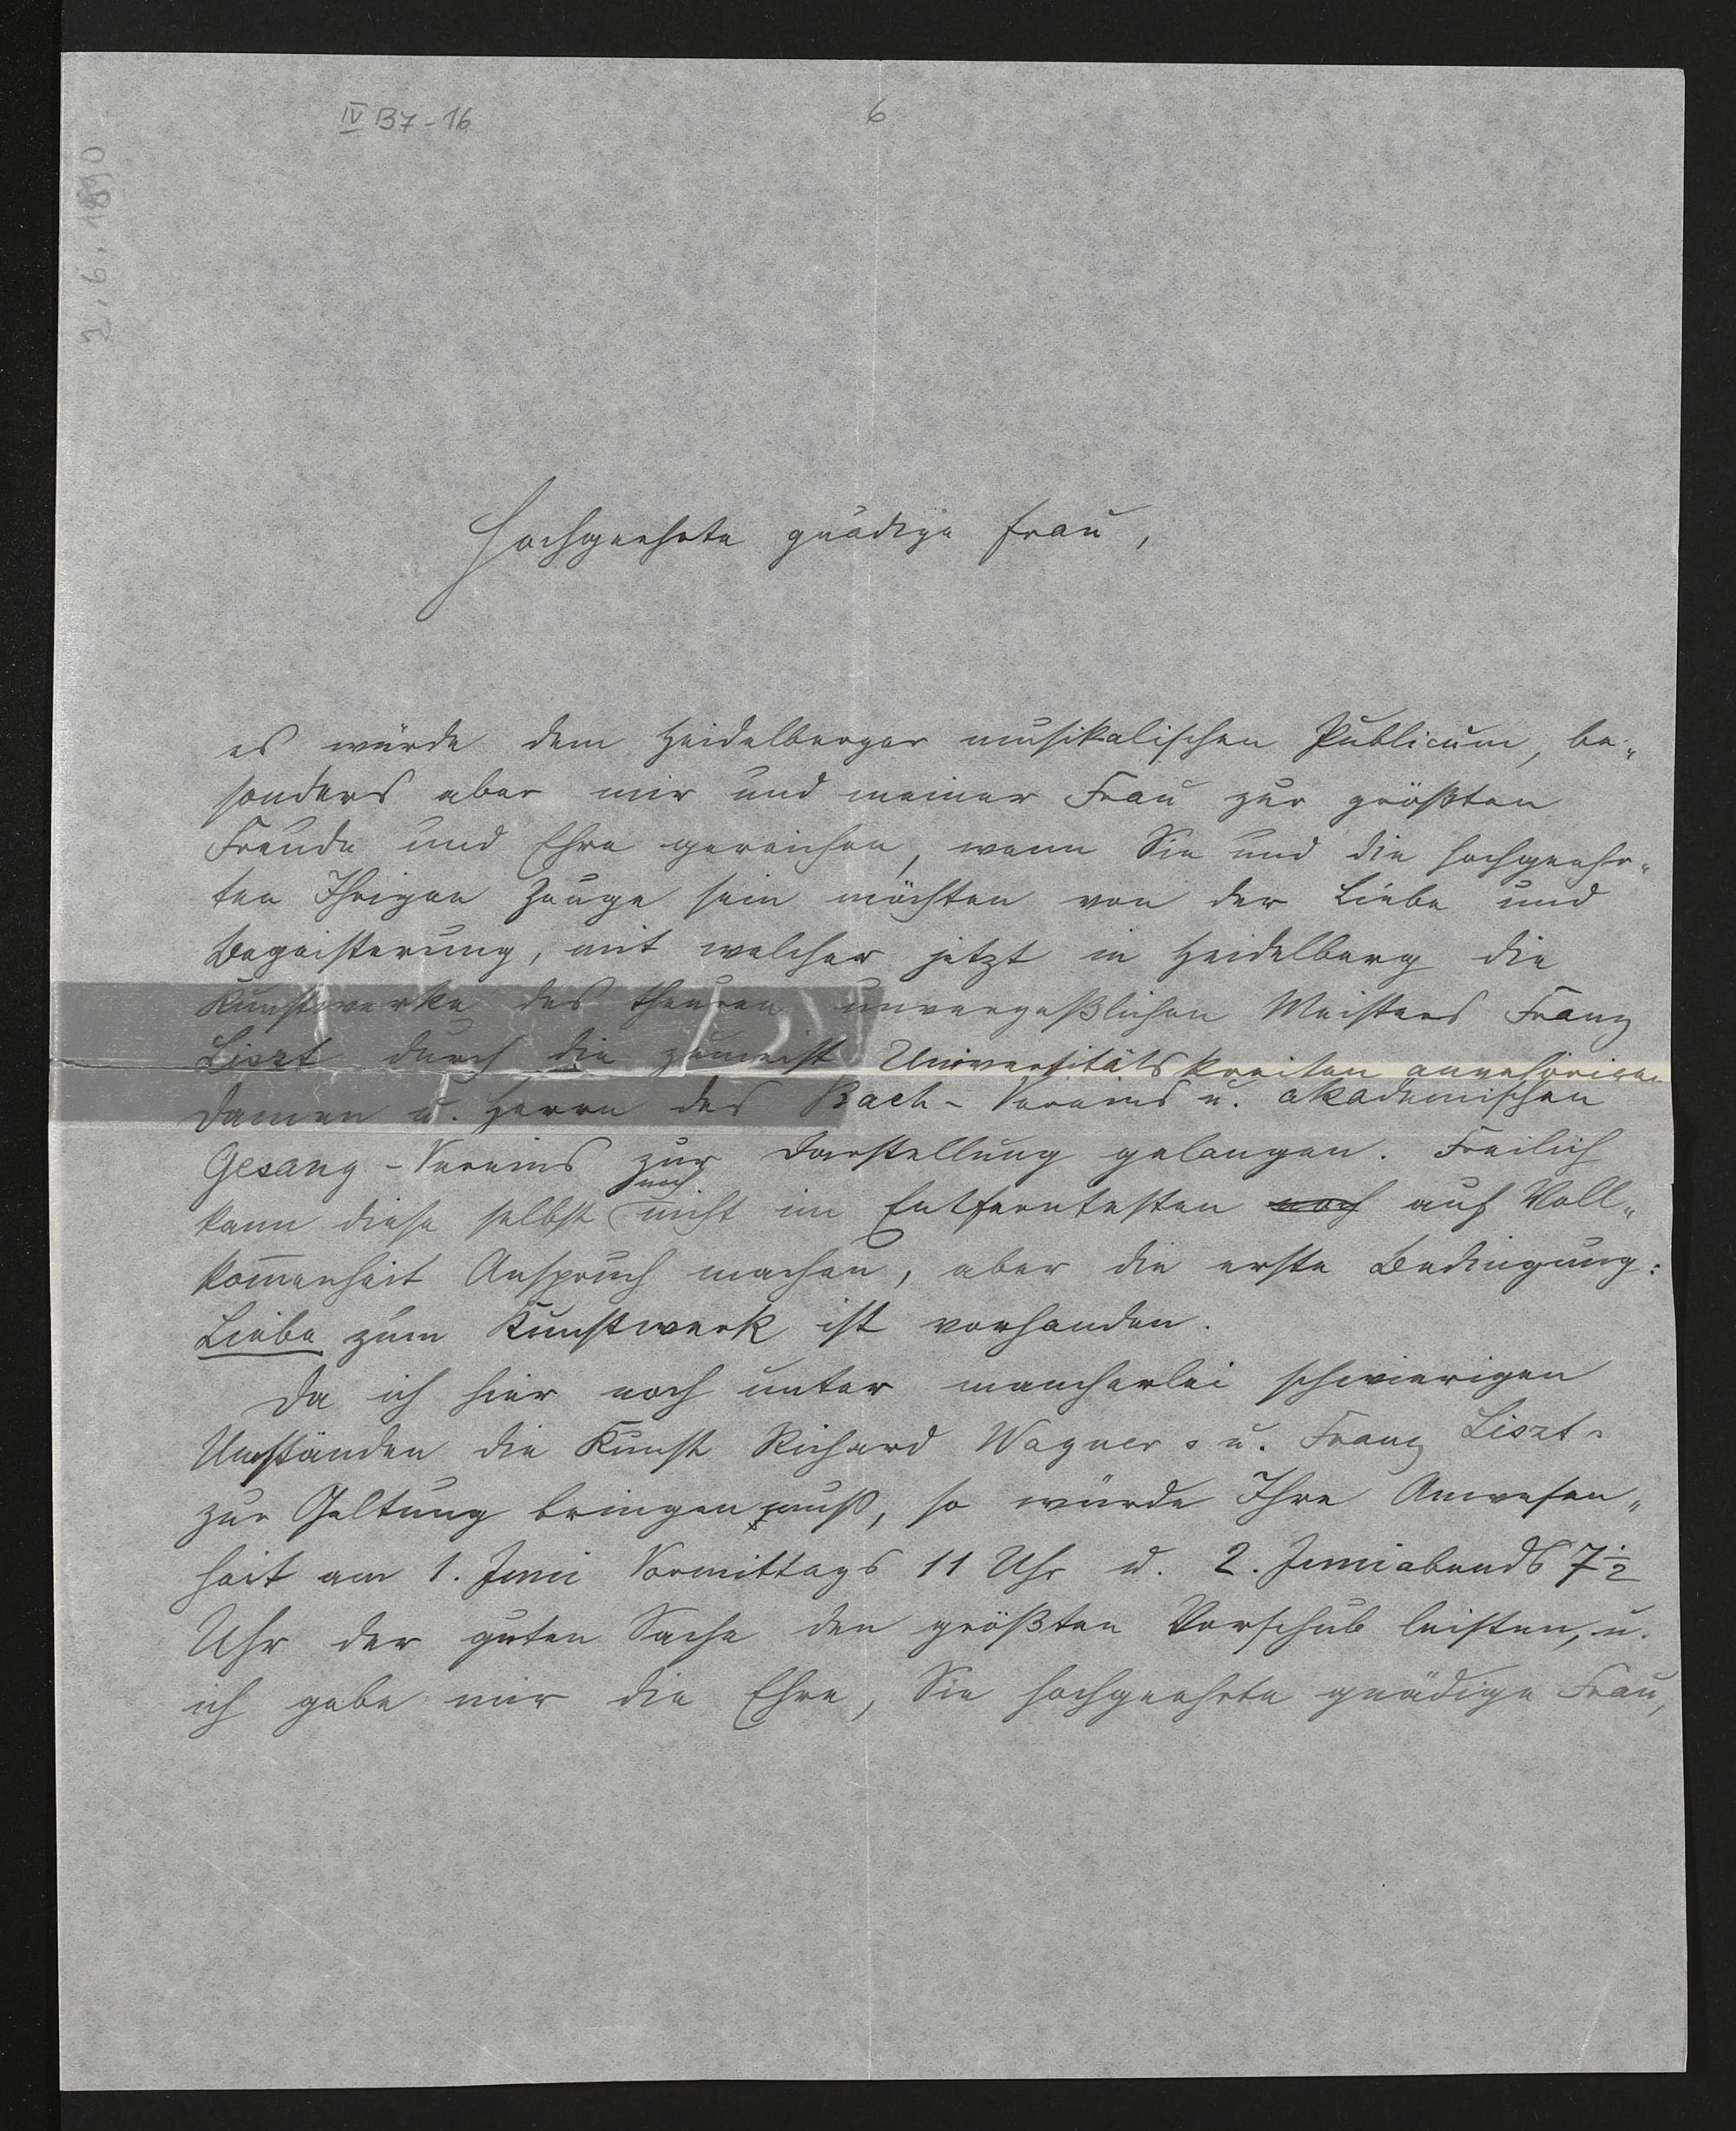 IV B7-16
6
1.6.1890
Hochgeehrte gnädige Frau,
es würde dem Heidelberger musikalischen Publicum, be-
sonders aber mir und meiner Frau zur größten
Freude und Ehre gereichen, wenn Sie und die hochgeehr-
ten Ihrigen Zeuge sein möchten von der Liebe und
Begeisterung, mit welcher jetzt in Heidelberg die
Kunstwerke des theuren unvergeßlichen Meisters Franz
Liszt durch die zumeist Universitätskreisen angehörigen
Damen u. Herrn des Bach-Vereins u. akademischen
Gesang-Vereins zur Darstellung gelangen. Freilich
kann diese selbst noch nicht im Entferntesten noch auf Voll-
kommenheit Anspruch machen, aber die erste Bedingung:
Liebe zum Kunstwerk ist vorhanden.
Da ich hier noch unter mancherlei schwierigen
Umständen die Kunst Richard Wagners u. Franz Liszts
zur Geltung bringen muß, so würde Ihre Anwesen-
heit am 1. Juni Vormittags 11 Uhr u. 2. Juni abends 7½
Uhr der guten Sache den größten Vorschub leisten, u.
ich gebe mir die Ehre, Sie hochgeehrte gnädige Frau,